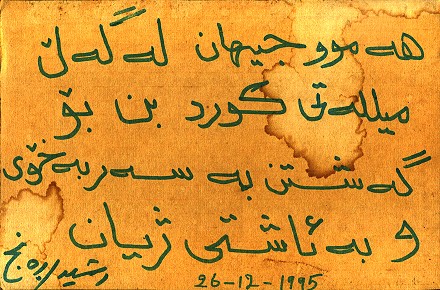 هەموو جیهان لەگەڵ
میللەتی کورد بن بۆ
گەشتن بە سەربەخۆی
و بە ئاشتی ژیان
26-12-1995